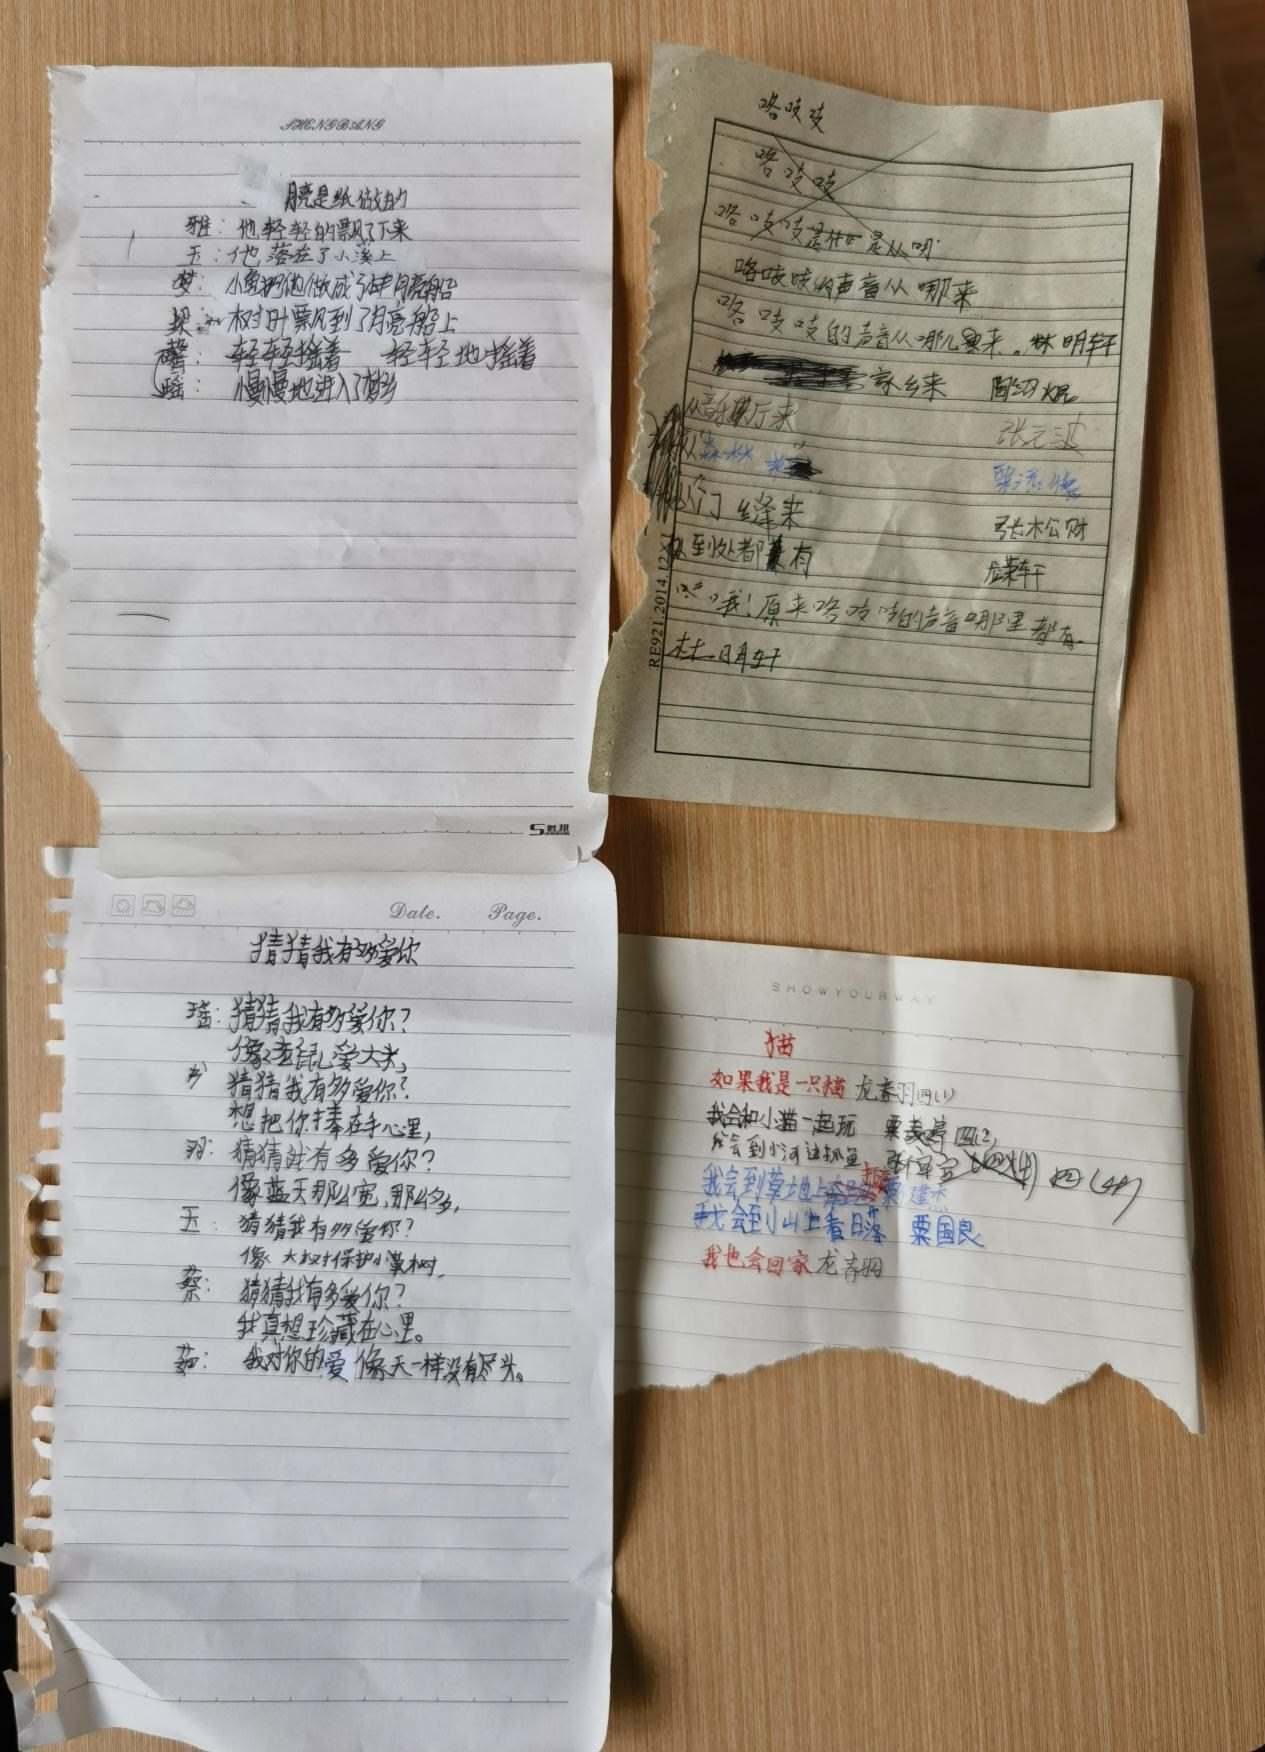 SHENGBANG
月亮是纸做的
雅：他轻轻的飘了下来
玉：他落在了小溪上
梦：小兔把他做成了月亮船
树叶飘到了月亮船上
馨：轻轻摇着 轻轻地摇着
瑶：慢慢地进入了梦乡
咯吱吱
咯吱吱
咯吱吱是什么是从明
咯吱吱的声音从哪来
咯吱吱的声音从哪儿来。林明轩
家乡来
从音乐厅来 张元波
从森林来
从门缝来 张松财
到处都有
哦！原来咯吱吱的声音哪里都有
RE921.2014.12X
Date. Page.
猜猜我有多爱你
瑶：猜猜我有多爱你？
像老鼠爱大米，
猜猜我有多爱你？
想把你捧在手心里，
羽：猜猜我有多爱你？
像蓝天那么宽，那么多，
玉：猜猜我有多爱你？
像大树保护小草树，
蔡：猜猜我有多爱你？
我真想珍藏在心里。
茹：我对你的爱像天一样没有尽头。
SHOWYOURWAY
猫
如果我是一只猫 龙春羽四(1)
我会和小猫一起玩
会到小河边抓鱼
我会到草地上
我会到小山上看日落 粟国良
我也会回家 龙春羽